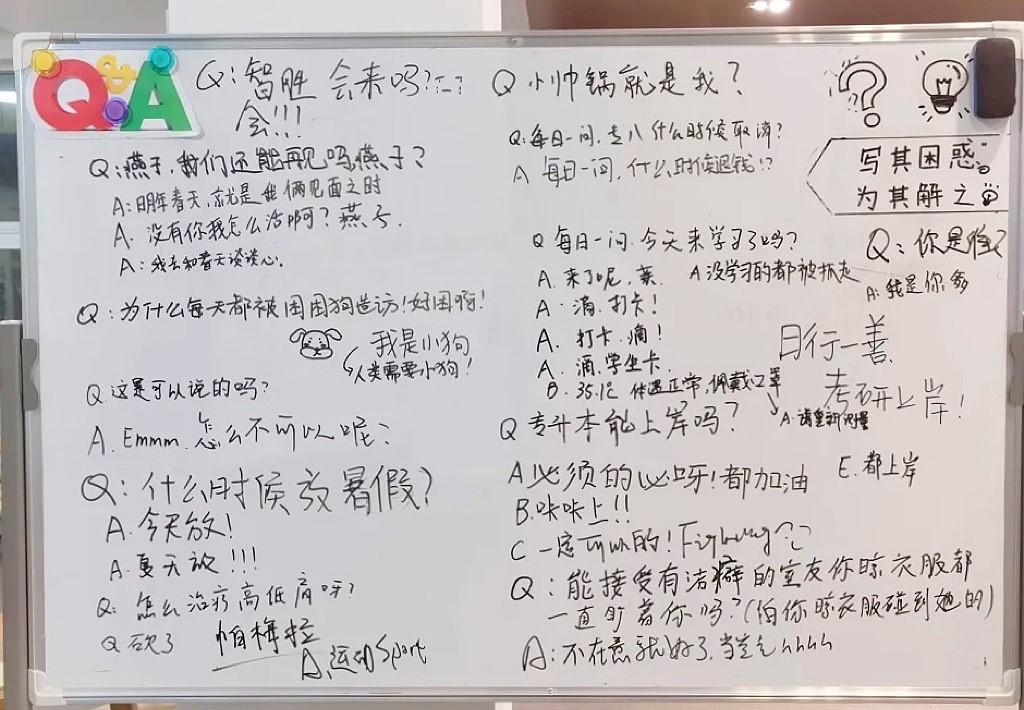 Q&A
Q：智胜 会来吗？
会!!!
Q：燕子，我们还能再见吗，燕子？
A：明年春天，就是我俩见面之时
A. 没有你我怎么活啊？燕子.
A：我去和春天谈谈心.
Q：为什么每天都被困困狗造访！好困啊！
我是小狗
人类需要小狗！
Q 这是可以说的吗？
A. Emmm. 怎么不可以呢
Q：什么时候放暑假？
A. 今天放！
A. 夏天放！！！
Q：怎么治疗高低肩呀？
Q 砍了
帕梅拉
A、运动Sport
Q 小帅锅就是我？
Q：每日一问，专八什么时候取消？
A 每日一问，什么时候退钱!?
Q 每日一问. 今天来学习了吗？
A. 来了呢，亲.
A 没学习的都被抓走
A. 滴. 打卡！
A. 打卡. 滴！
A. 滴. 学生卡.
B. 35.1℃ 体温正常，佩戴口罩
A. 请重新测量
Q 专升本能上岸吗？
A 必须的必呀！都加油
E. 都上岸
B. 咔咔上!!
C 一定可以的！Fighting
Q：能接受有洁癖的室友你晾衣服都
一直盯着你吗？(怕你晾衣服碰到她的)
A：不在意就好了.
写其困惑
为其解之
Q：你是谁？
A：我是你爹
日行一善
考研上岸！